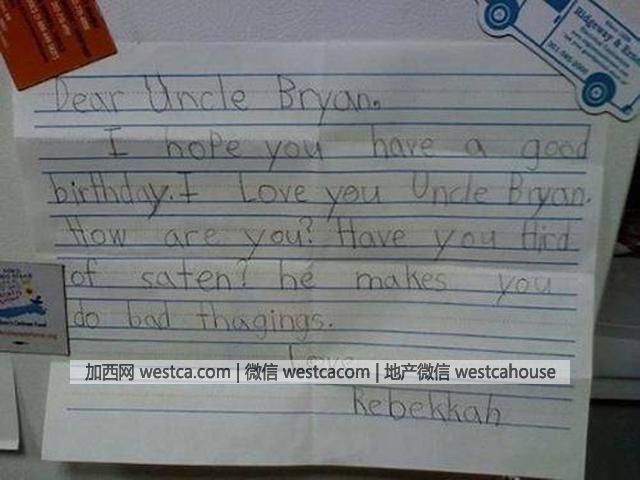 Dear Uncle Bryan.
I hope you have a good
birthday. I Love you Uncle Bryan.
How are you? Have you Hird
of saten? he makes you
do bad thagings.
Love
加西网 westca.com | 微信 westcacom | 地产微信 westcahouse
Rebekkah
Ridgeway &